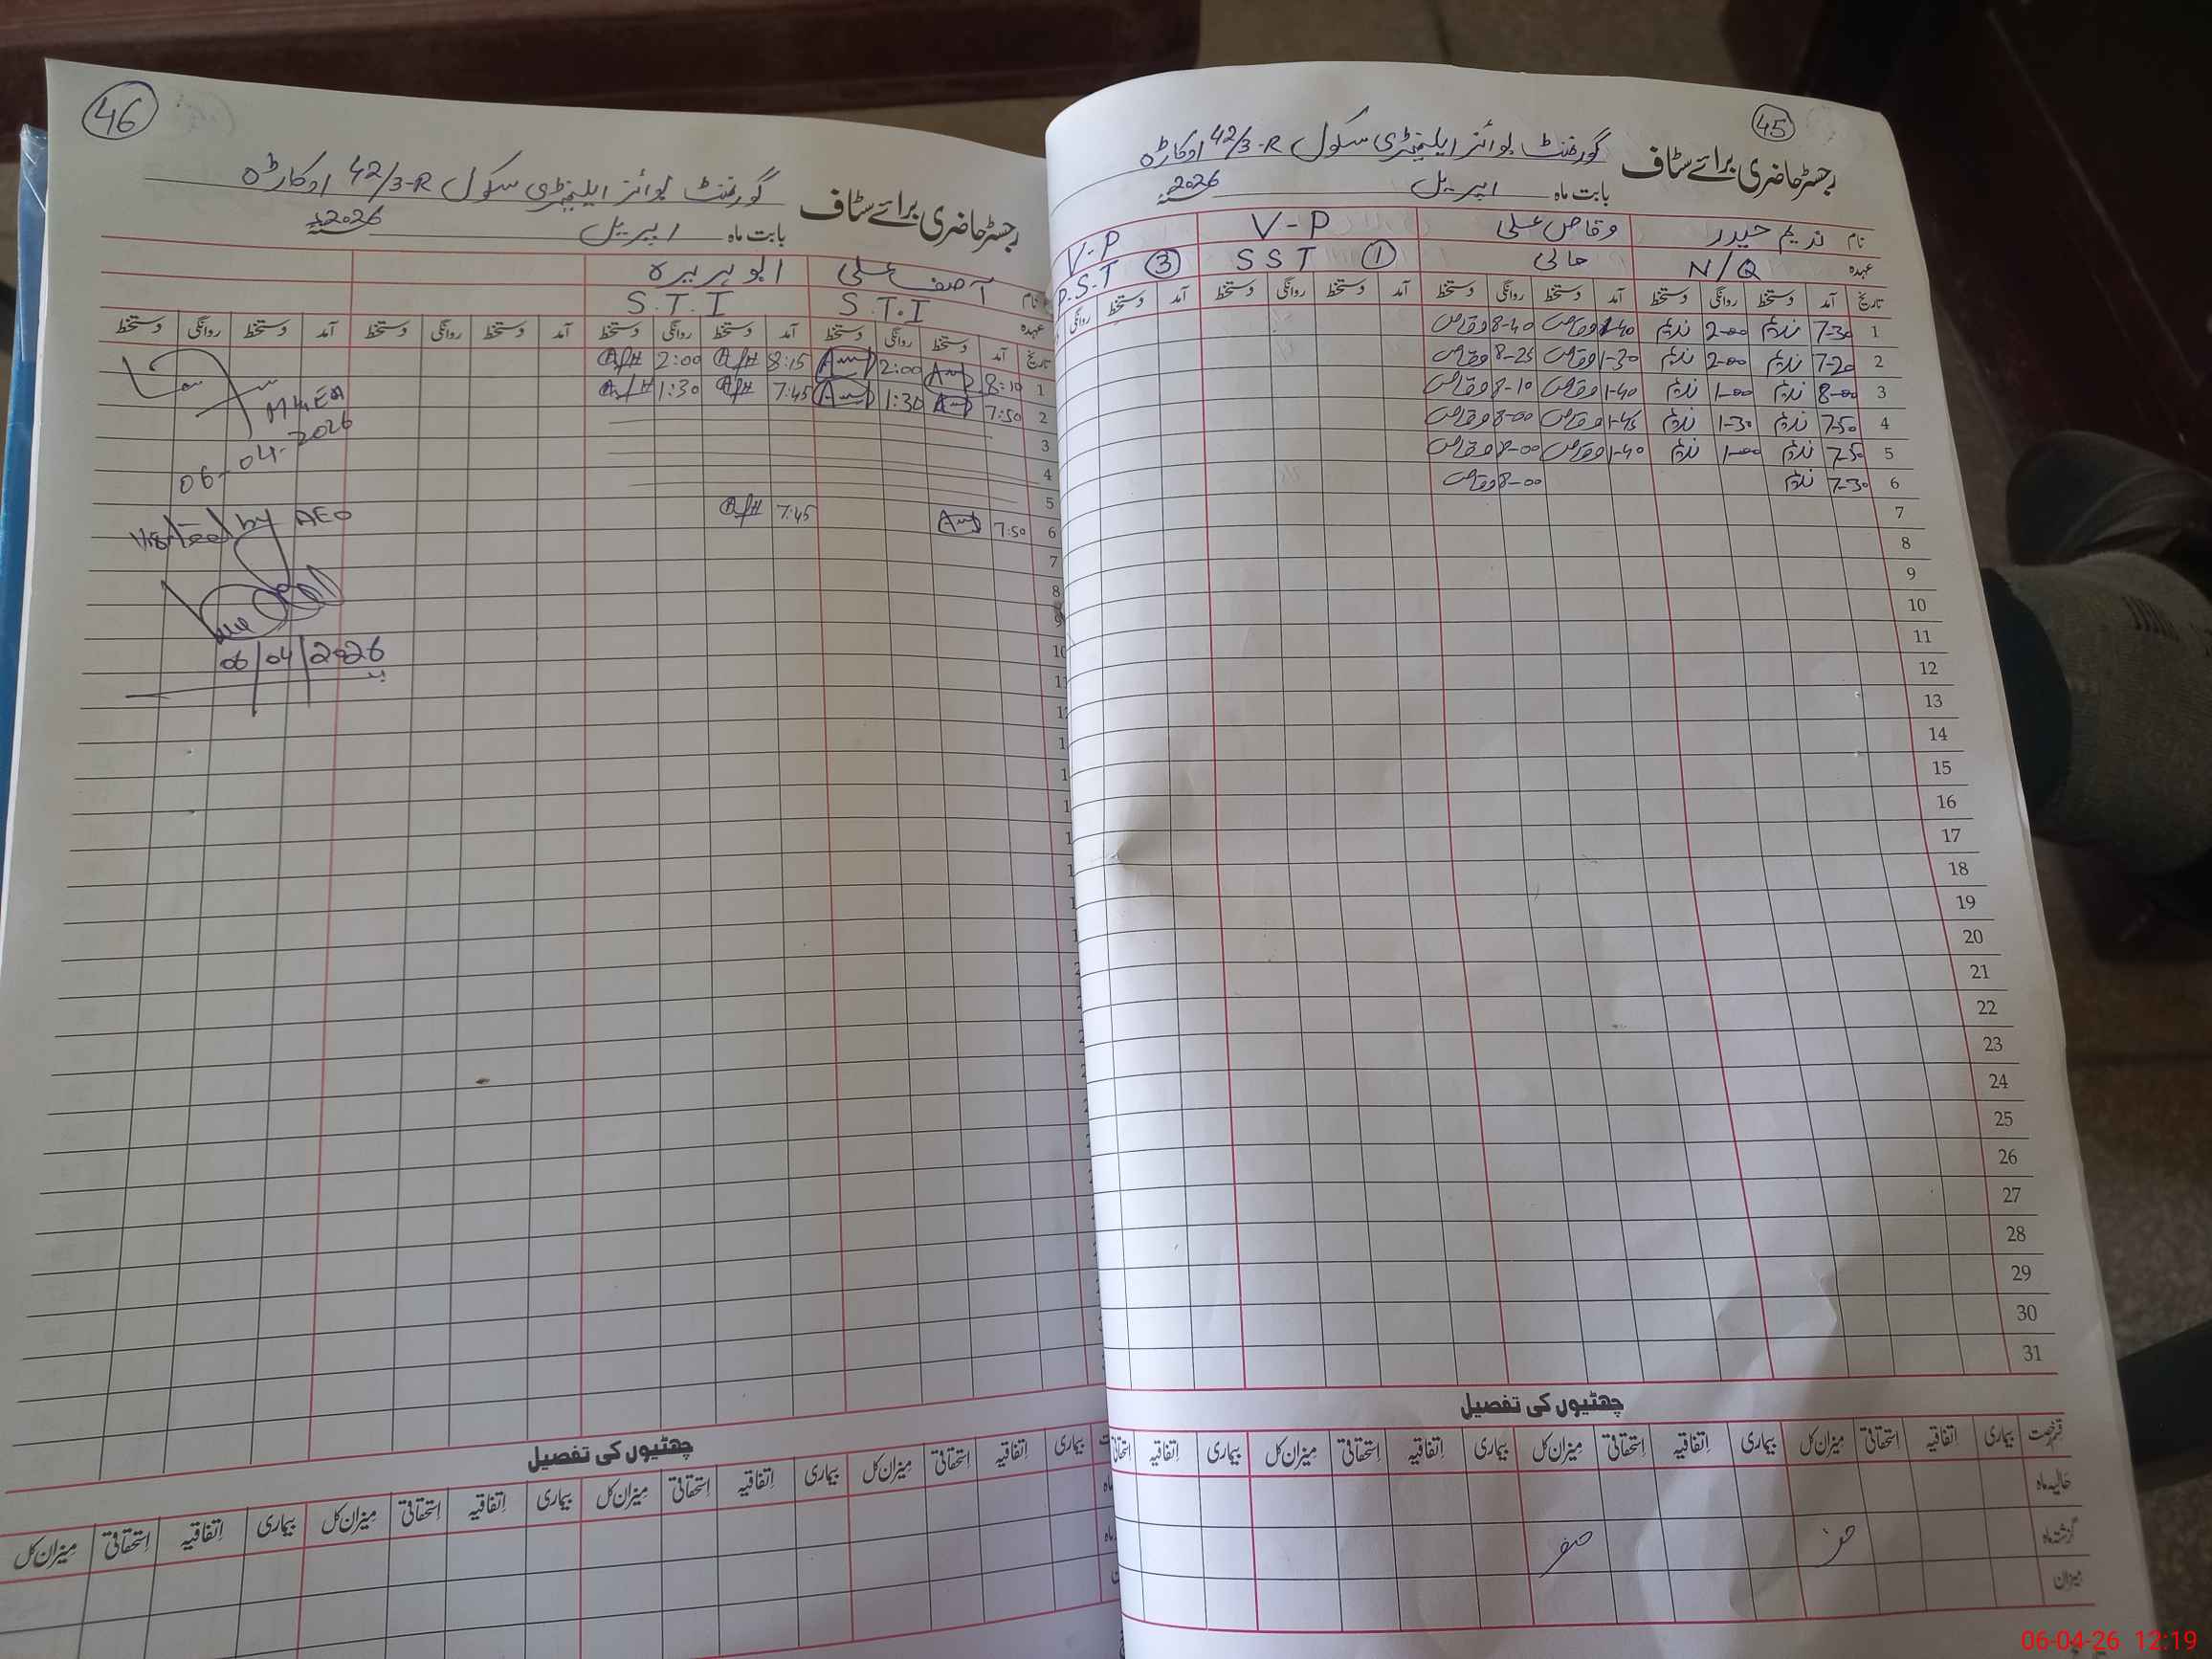 45
رجسٹر حاضری برائے سٹاف گورنمنٹ بوائز ایلیمنٹری سکول 42/3-R اوکاڑہ
بابت ماہ اپریل 2026ء
نام ندیم حیدر وقاص علی V-P V-P
عہدہ N/Q مالی SST ① P.S.T ③
تاریخ آمد دستخط روانگی دستخط آمد دستخط روانگی دستخط آمد دستخط روانگی دستخط آمد دستخط روانگی
1 7-30 ندیم 2-00 ندیم 1-40 وقاص 8-40 وقاص
2 7-20 ندیم 2-00 ندیم 1-30 وقاص 8-25 وقاص
3 8-00 ندیم 1-00 ندیم 1-40 وقاص 8-10 وقاص
4 7-50 ندیم 1-30 ندیم 1-45 وقاص 8-00 وقاص
5 7-50 ندیم 1-00 ندیم 1-40 وقاص 8-00 وقاص
6 7-30 ندیم 8-00 وقاص
7
8
9
10
11
12
13
14
15
16
17
18
19
20
21
22
23
24
25
26
27
28
29
30
31
چھٹیوں کی تفصیل
قسم رخصت بیماری اتفاقیہ استحقاقی میزان کل بیماری اتفاقیہ استحقاقی میزان کل بیماری اتفاقیہ استحقاقی میزان کل بیماری اتفاقیہ استحقاقی
حالیہ ماہ
گزشتہ ماہ صفر صفر
میزان
46
رجسٹر حاضری برائے سٹاف گورنمنٹ بوائز ایلیمنٹری سکول 42/3-R اوکاڑہ
بابت ماہ اپریل 2026ء
نام آصف علی ابو ہریرہ
عہدہ S.T.I S.T.I
تاریخ آمد دستخط روانگی دستخط آمد دستخط روانگی دستخط آمد دستخط روانگی دستخط آمد دستخط روانگی دستخط
1 8:10 2:00 8:15 A/H 2:00 A/H
2 7:50 1:30 7:45 A/H 1:30 A/H
3
4
5
6 7:50 7:45 A/H
7
8
9
10
MHEA
06-04-2026
Visited by AEO
06/04/2026
چھٹیوں کی تفصیل
بیماری اتفاقیہ استحقاقی میزان کل بیماری اتفاقیہ استحقاقی میزان کل بیماری اتفاقیہ استحقاقی میزان کل بیماری اتفاقیہ استحقاقی میزان کل
06-04-26 12:19